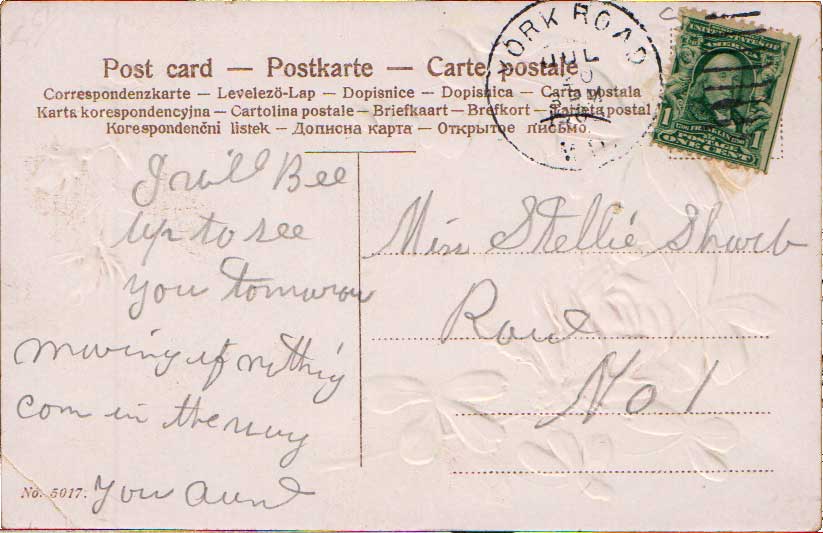 YORK ROAD
JUL
M D.
UNITED STATES OF AMERICA
FRANKLIN
1 1
POSTAGE
ONE CENT
Post card — Postkarte — Carte postale
Correspondenzkarte — Levelezö-Lap — Dopisnice — Dopisnica — Carta postala
Karta korespondencyjna — Cartolina postale — Briefkaart — Brefkort — Tarjeta postal
Korespondenčni listek — Дописна карта — Открытое письмо.
I will Bee
up to see
you tomorow
morning if nothing
com in the way
you aunt
Miss Stellie Shorb
Roud
No 1
No. 5017.